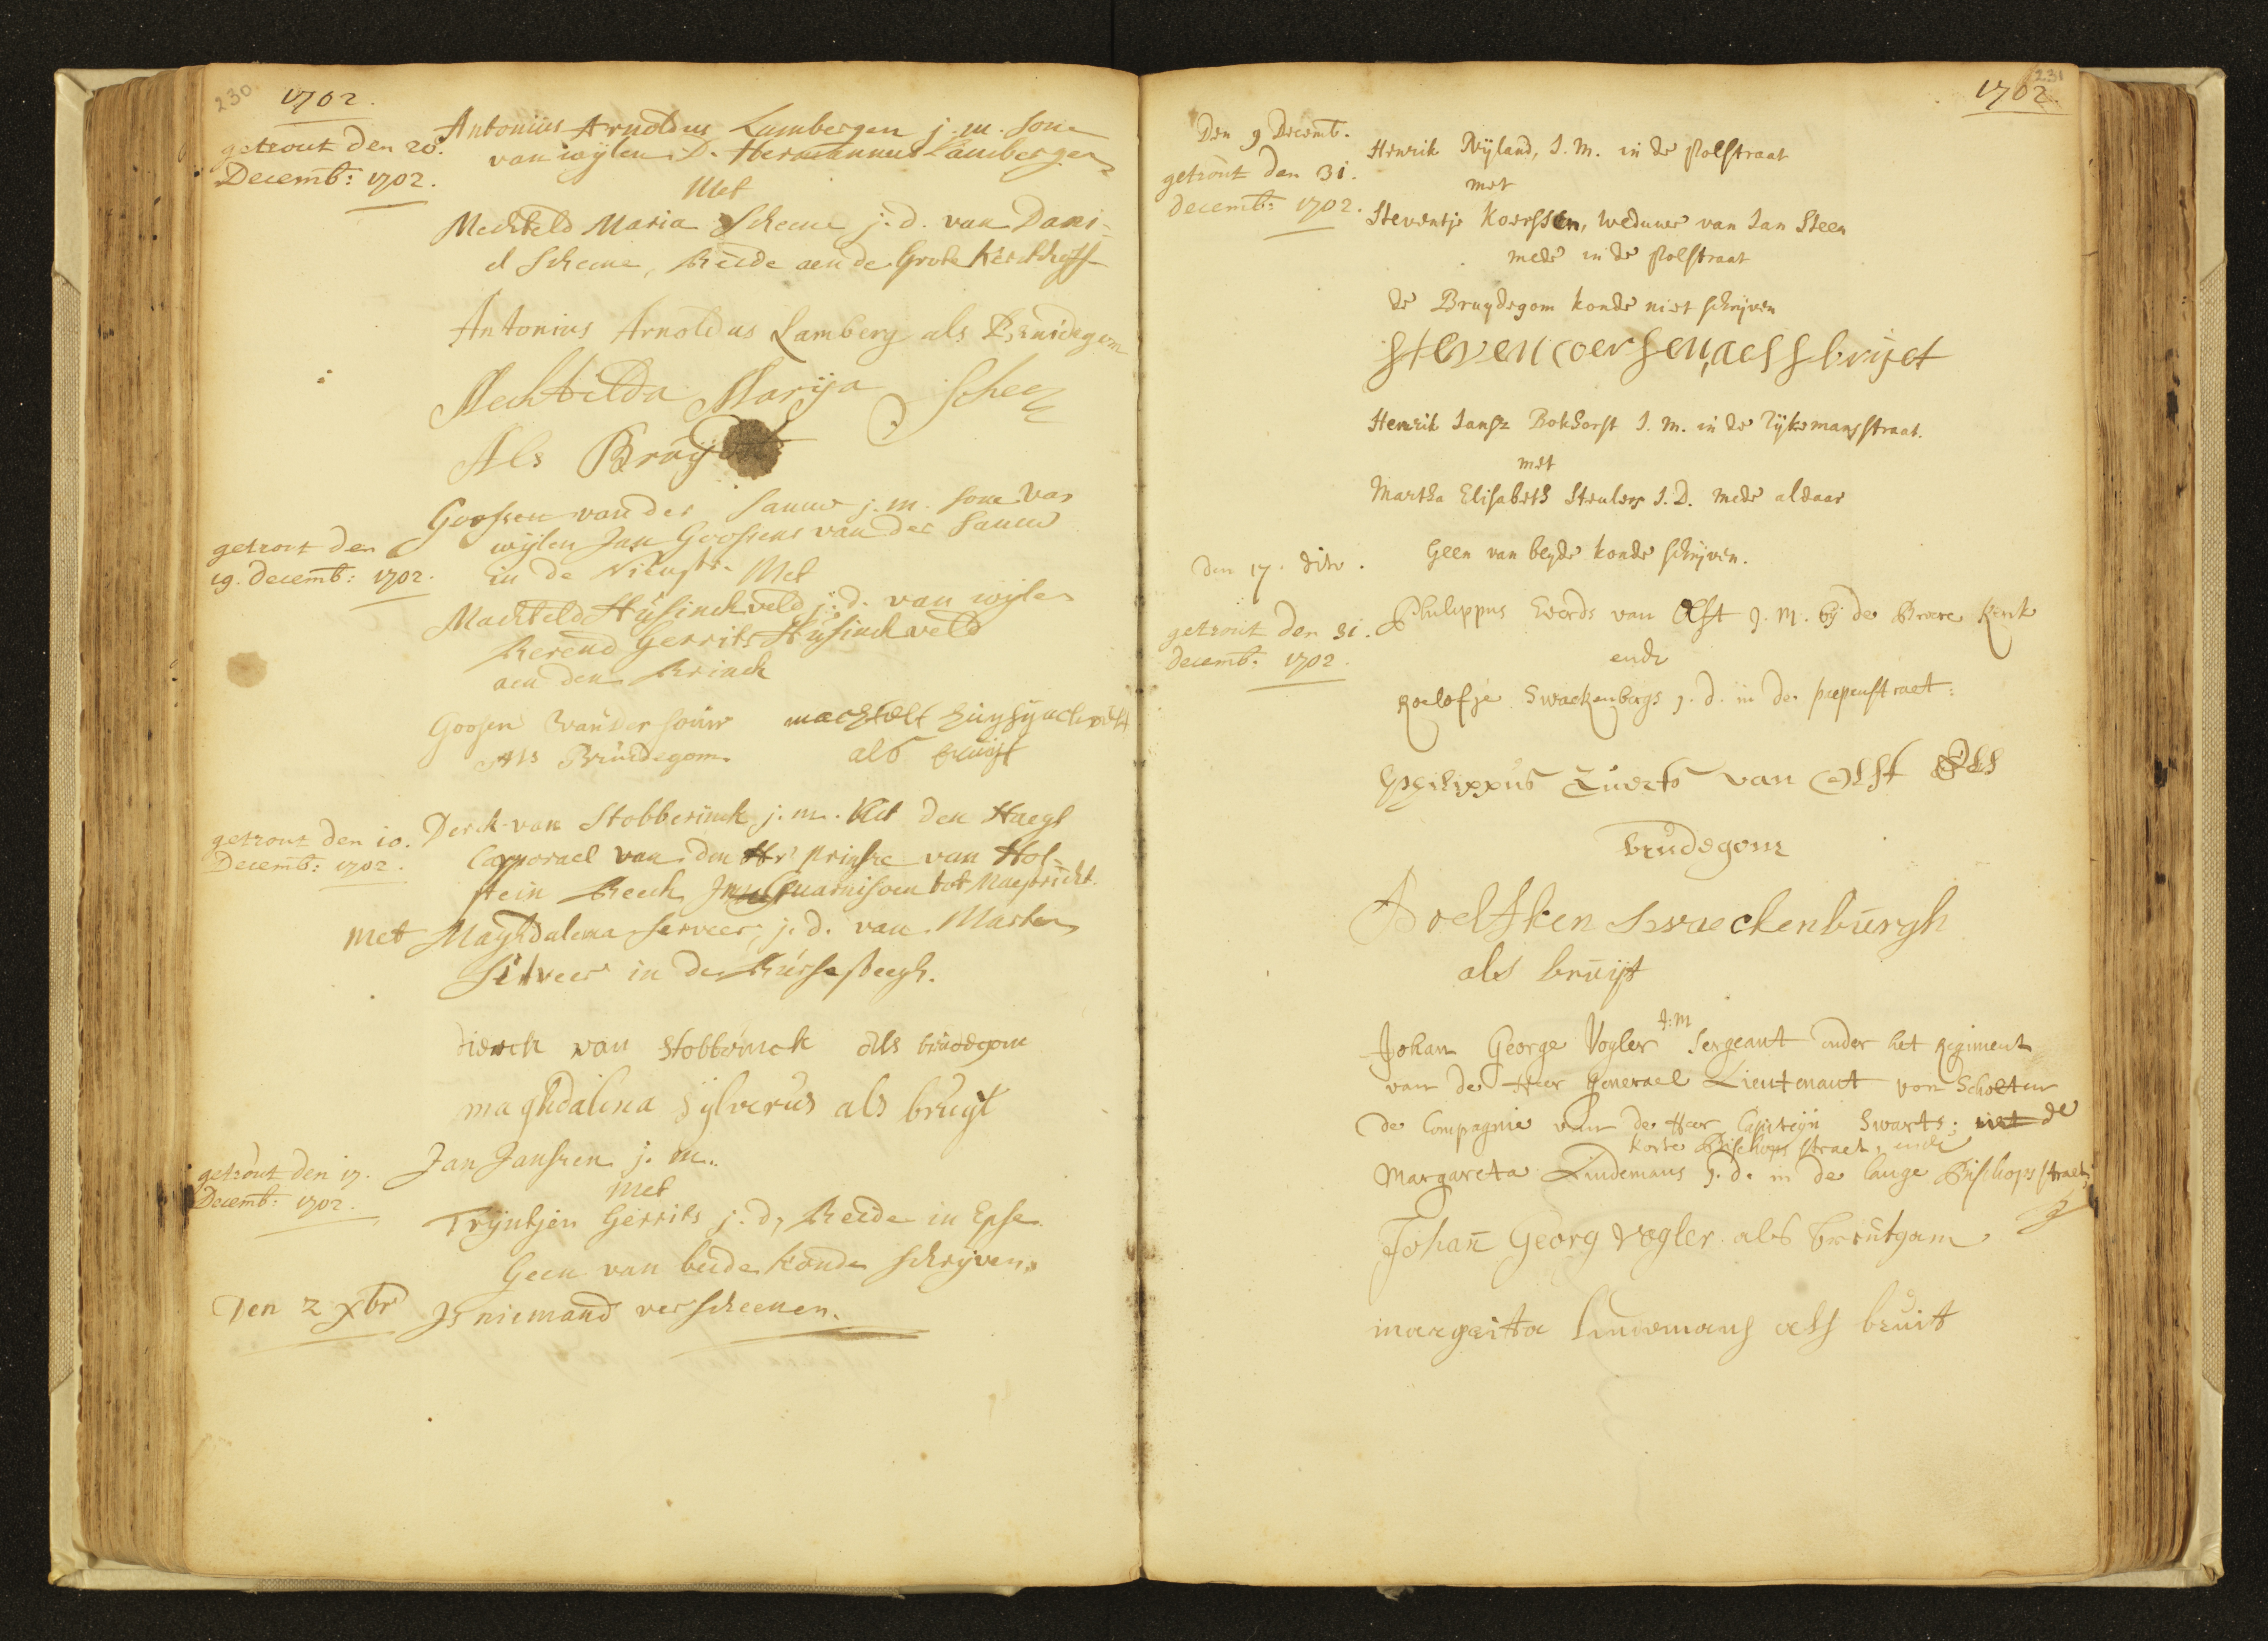 230 1702.
getrout den 20.
Decemb: 1702.
Antonius Arnoldus Lambergen j. m. sone
van wijlen D. Hermannus Lambergen
Met
Mechteld Maria Scheme j. d. van Dani-
el Scheme, Beide aen de Grote Kerckhoff
Antonius Arnoldus Lamberg als Bruidegom
Mechtelda Marija
Als Bruijdt
getrout den
19. Decemb: 1702.
Goossen van der Sauw j. m. sone van
wijlen Jan Goossens van der Sauw
in de Nieustr. Met
Machteld Husinckveld j. d. van wijlen
Berend Gerrits Husinckveld
aen den Brinck
Goosen van der souw machtelt
Als Bruidegom als bruijt
getrout den 10.
Decemb: 1702.
Derck van Stobberinck j. m. Uit den Haegh
Capporael van den Hr prinse van Hol-
stein Beeck In Guarnisoen tot Maestricht.
met Maghdalena Serveer, j. d. van Marten
Silveer in de Bursesteegh.
dierck van Stobbrinck als bruidegom
maghdalena Sylverus als bruyt
getrout den 17.
Decemb: 1702.
Jan Janssen j. m.
Met
Trijntjen Gerrits j. d, Beide in Epse
Geen van beide konde schrijven.
Den 2 xbr Is niemand verscheenen.
231
1702.
Den 9 Decemb.
getrout den 31.
decemb: 1702.
Henrik Nijland, J. M. in de Polstraat
met
Steventje Koerssen, weduwe van Jan Steen
mede in de Polstraat
de Bruydegom konde niet schrijven
steven coersen, aels bruijet
Henrik Jansz Bokhorst J. M. in de Rijkmansstraat.
met
Martha Elisabeth Steulers J. D. mede aldaar
Geen van beyde konde schrijven.
den 17. dito.
getrout den 31.
decemb. 1702.
Philippus Everds van Olst J. M. bij de Broere Kerk
ende
Roelofje Swackenbergs J. d. in de papenstraet:
Philippus Euerts van Olst Als
brudegom
Roelfken swaeckenburgh
als bruijt
Johan George Vogler J: M Sergeant onder het Regiment
van de Heer Generael Lieutenant von Scholten
de Compagnie van de Heer Capiteijn Swarts; uit de
korte Bischops straet, ende
Margareta Lindemans J. d. in de lange Bischops straet,
Johan Georg Vogler als breutgam
margrita lindemans als bruit